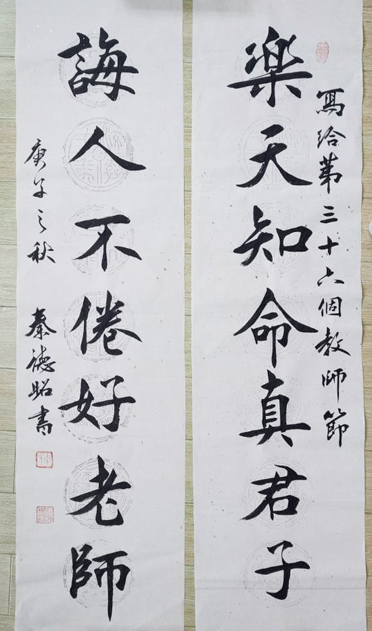 寫給第三十六個教師節
樂天知命真君子
誨人不倦好老師
庚子之秋 秦德昭書